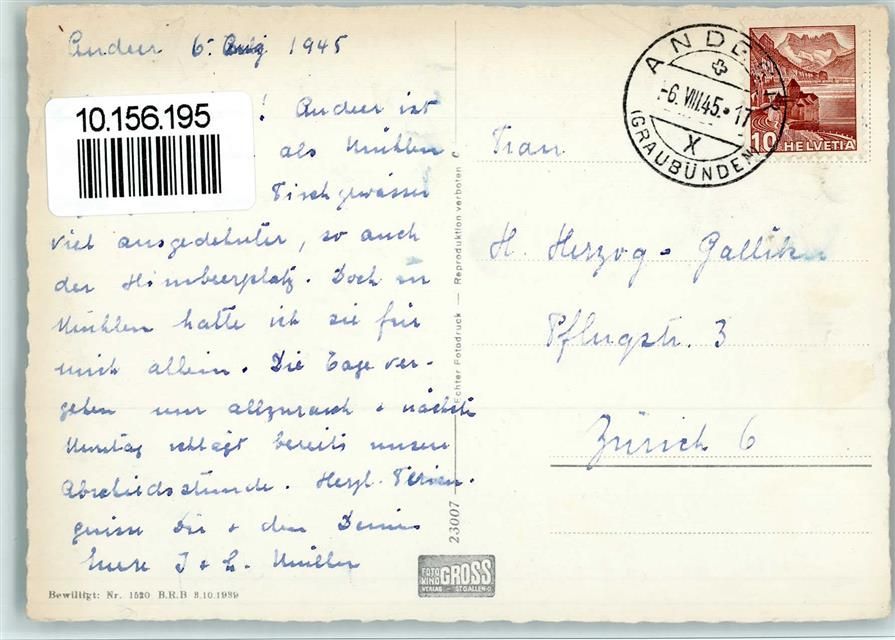 Andeer 6. Aug 1945
10.156.195
! Andeer ist
als Mühlen
Fischgewässer
viel ausgedehnter, so auch
der Himbeerplatz. Doch in
Mühlen hatte ich sie für
mich allein. Die Tage ver-
gehen nur allzurasch & nächste
Montag schlägt bereits unsere
Abschiedsstunde. Herzl. Ferien-
grüsse Dir & den Deinen
Eure J & L. Müller
Bewilligt: Nr. 1520 B.R.B 3.10.1939
23007 — Echter Fotodruck — Reproduktion verboten
FOTO KINO GROSS
VERLAG - ST GALLEN-O
ANDEER
-6.VIII.45.-17
X
(GRAUBÜNDEN)
10 HELVETIA
Frau
H. Herzog-Galliker
Pflugstr. 3
Zürich 6